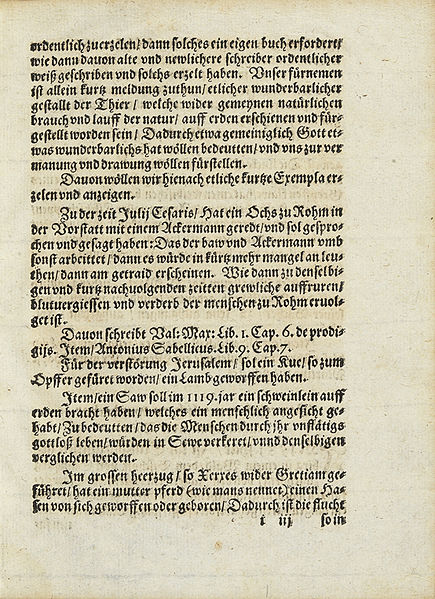 ordentlich zuerzelen/ dann solches ein eigen buch erfordert/
wie dann dauon alte vnd newlichere schreiber ordentlicher
weiß geschriben vnd solchs erzelt haben. Vnser fürnemen
ist allein kurtz meldung zuthun/ etlicher wunderbarlicher
gestallt der Thier/ welche wider gemeynen natürlichen
brauch vnd lauff der natur/ auff erden erschienen vnd für-
gestellt worden sein/ Dadurch etwa gemeiniglich Gott et-
was wunderbarlichs hat wöllen bedeutten/ vnd vns zur ver
manung vnd drawung wöllen fürstellen.
Dauon wöllen wir hienach etliche kurtze Exempla er-
zelen vnd anzeigen.
Zu der zeit Julij Cesaris/ Hat ein Ochs zu Rohm in
der Vorstatt mit einem Ackermann geredt/ vnd sol gespro-
chen vnd gesagt haben: Das der baw vnd Ackermann vmb
sonst arbeittet/ dann es würde in kürtz mehr mangel an leu-
then/ dann am getraid erscheinen. Wie dann zu denselbi-
gen vnd kurtz nachuolgenden zeitten grewliche auffruren/
blutuergiessen vnd verderb der menschen zu Rohm eruol-
get ist.
Dauon schreibt Val: Max: Lib. 1. Cap. 6. de prodi-
gijs. Item/ Antonius Sabellicus. Lib. 9. Cap. 7.
Für der verstörung Jerusalem/ sol ein Kue/ so zum
Opffer gefüret worden/ ein Lamb geworffen haben.
Item/ ein Saw soll im 1119. jar ein schweinlein auff
erden bracht haben/ welches ein menschlich angesicht ge-
habt/ Zubedeutten/ das die Menschen durch jhr vnflätigs
gottloß leben/ würden in Sewe verkeret/ vnnd denselbigen
verglichen werden.
Im grossen heerzug/ so Xerxes wider Gretiam ge-
führet/ hat ein mutter pferd (wie mans nennet) einen Ha-
sen von sich geworffen oder geboren/ Dadurch ist die flucht
i iij so in